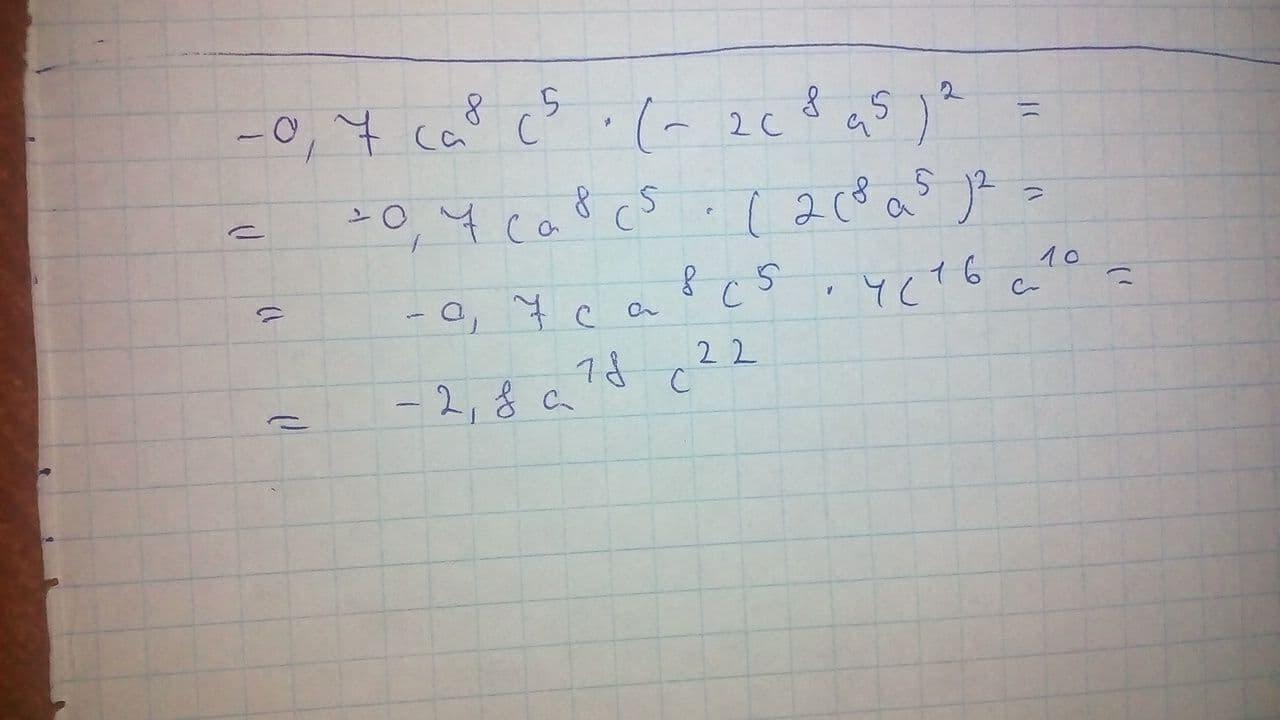 -0,7 ca⁸ c⁵ · (- 2c⁸ a⁵)² =
= -0,7 ca⁸ c⁵ · (2c⁸ a⁵)² =
= -0,7 c a⁸ c⁵ · 4c¹⁶ a¹⁰ =
= -2,8 a¹⁸ c²²